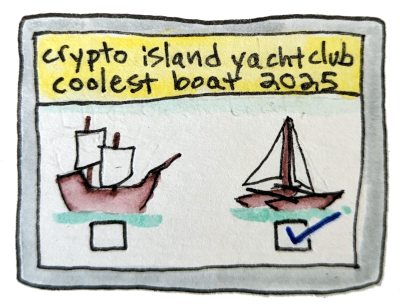 crypto island yacht club
coolest boat 2025